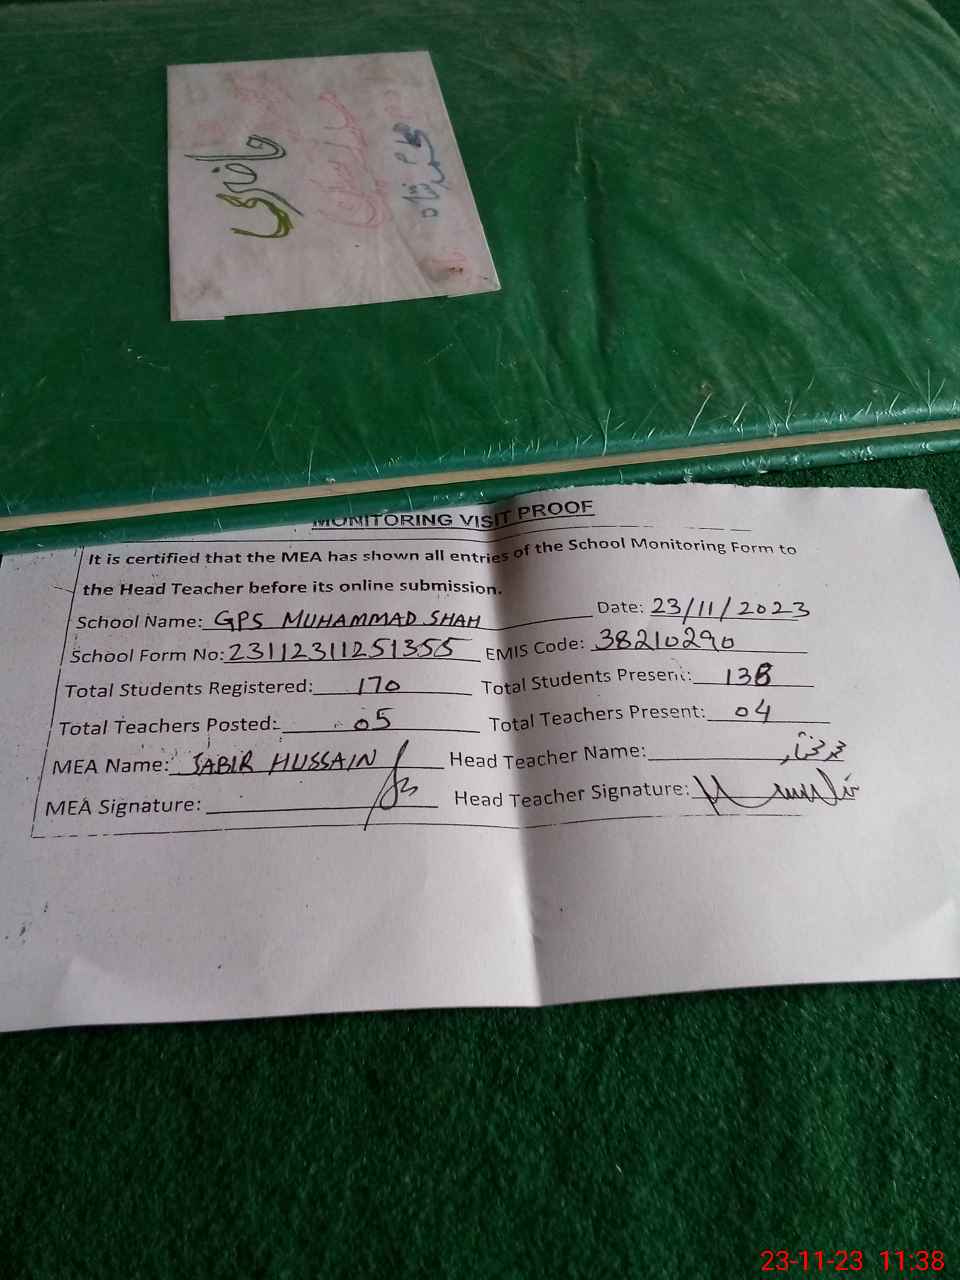 حاضری
محمد شاہ
MONITORING VISIT PROOF
It is certified that the MEA has shown all entries of the School Monitoring Form to
the Head Teacher before its online submission.
School Name: GPS MUHAMMAD SHAH Date: 23/11/2023
School Form No: 23112311251355 EMIS Code: 38210290
Total Students Registered: 170 Total Students Present: 138
Total Teachers Posted: 05 Total Teachers Present: 04
MEA Name: SABIR HUSSAIN Head Teacher Name:
MEA Signature: Head Teacher Signature:
23-11-23 11:38